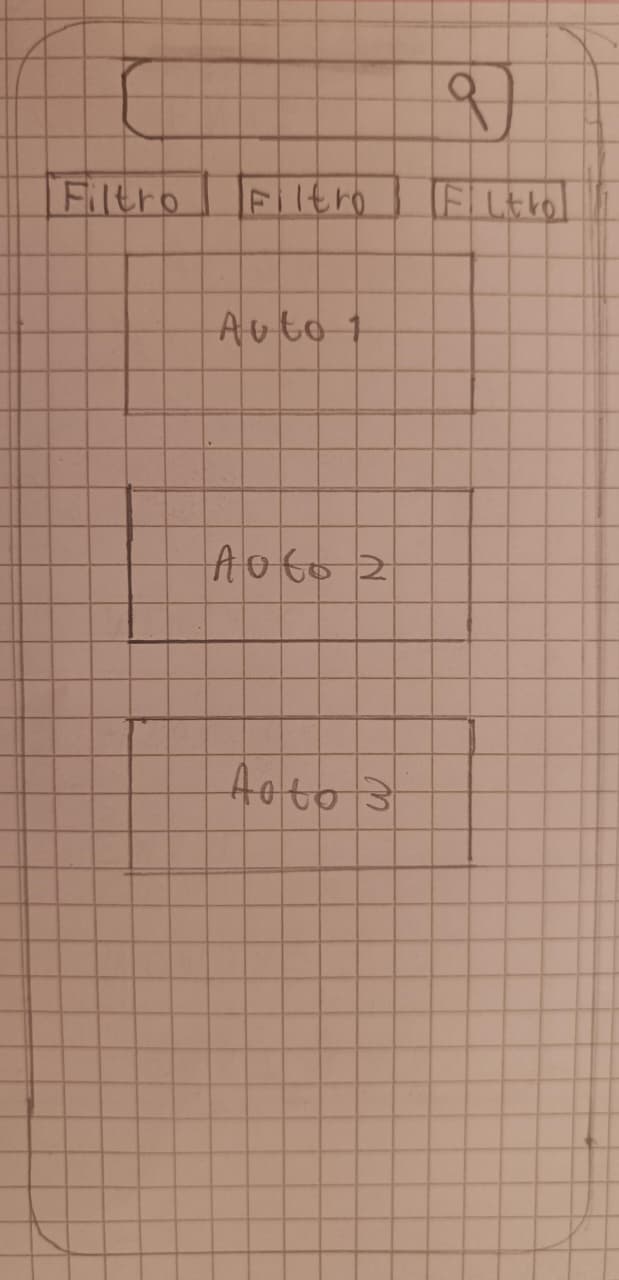 Filtro Filtro Filtro
Auto 1
Aoto 2
Aoto 3